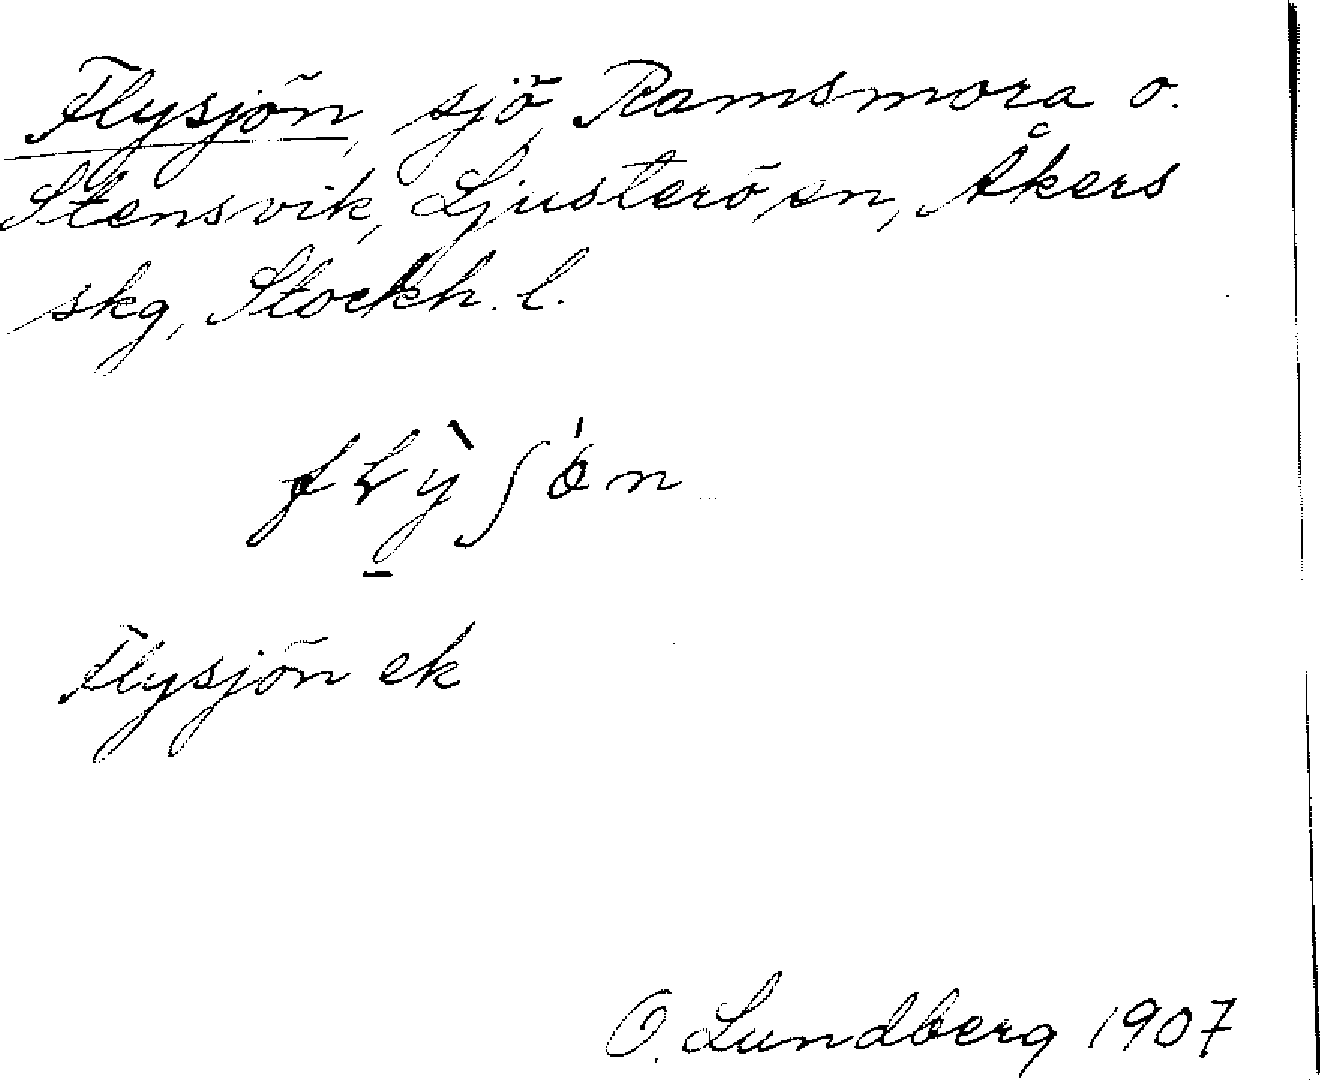 Flysjön, sjö, Ramsmora o.
Stensvik, Ljusterö sn, Åkers
skg, Stockh. l.
Flysjön ek
O. Lundberg 1907